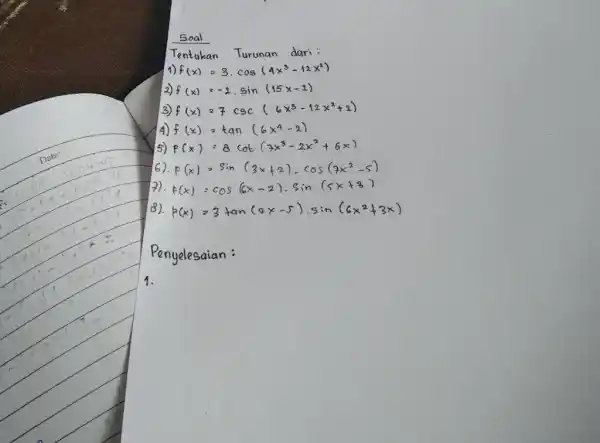 Soal
Tentukan Turunan dari :
1) f(x) = 3. cos (4x³ - 12x²)
2) f(x) = -2. sin (15x-2)
3) f(x) = 7 csc ( 6x⁵ - 12x²+2)
4) f(x) = tan (6x⁴ - 2)
5) f(x) = 8 cot (7x³ - 2x² + 6x)
6). f(x) = sin (3x+2). cos (7x² -5)
7). f(x) = cos (6x - 2). sin (5x+3)
8). f(x) = 3 tan (x-5). sin (6x²+3x)
Penyelesaian :
1.
Date: